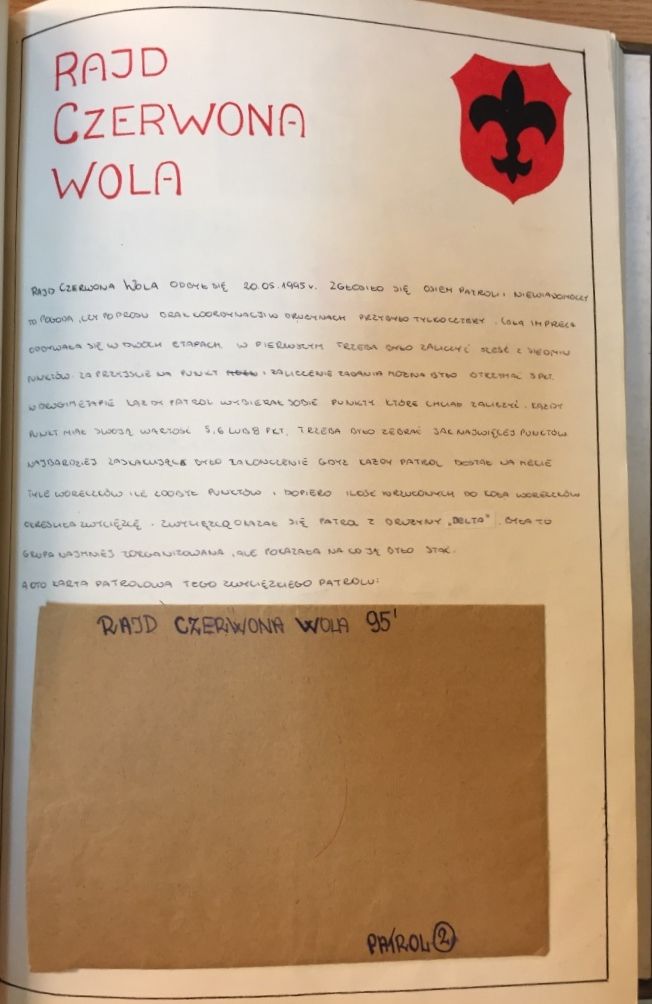 RAJD
CZERWONA
WOLA
RAJD CZERWONA WOLA ODBYŁ SIĘ 20.05.1995r. ZGŁOSIŁO SIĘ OSIEM PATROLI I NIEWIADOMO CZY
TO POGODA, CZY PO PROSTU BRAK KOORDYNACJI W DRUŻYNACH PRZYBYŁO TYLKO CZTERY. CAŁA IMPREZA
ODBYWAŁA SIĘ W DWÓCH ETAPACH. W PIERWSZYM TRZEBA BYŁO ZALICZYĆ SZEŚĆ Z SIEDMIU
PUNKTÓW. ZA PRZYJŚCIE NA PUNKT I ZALICZENIE ZADANIA MOŻNA BYŁO OTRZYMAĆ 5 PKT.
W DRUGIM ETAPIE KAŻDY PATROL WYBIERAŁ SOBIE PUNKTY KTÓRE CHCIAŁ ZALICZYĆ. KAŻDY
PUNKT MIAŁ SWOJĄ WARTOŚĆ 5,6 LUB 8 PKT. TRZEBA BYŁO ZEBRAĆ JAK NAJWIĘCEJ PUNKTÓW.
NAJBARDZIEJ ZASKAKUJĄCE BYŁO ZAKOŃCZENIE GDYŻ KAŻDY PATROL DOSTAŁ NA MECIE
TYLE WORECZKÓW ILE ZDOBYŁ PUNKTÓW I DOPIERO ILOŚĆ WRZUCONYCH DO KOŁA WORECZKÓW
OKREŚLIŁA ZWYCIĘZCĘ. ZWYCIĘZCĄ OKAZAŁ SIĘ PATROL Z DRUŻYNY „DELTA". BYŁA TO
GRUPA NAJMNIEJ ZORGANIZOWANA, ALE POKAZAŁA NA CO JĄ BYŁO STAĆ.
A OTO KARTA PATROLOWA TEGO ZWYCIĘZKIEGO PATROLU:
RAJD CZERWONA WOLA 95'
PATROL 2